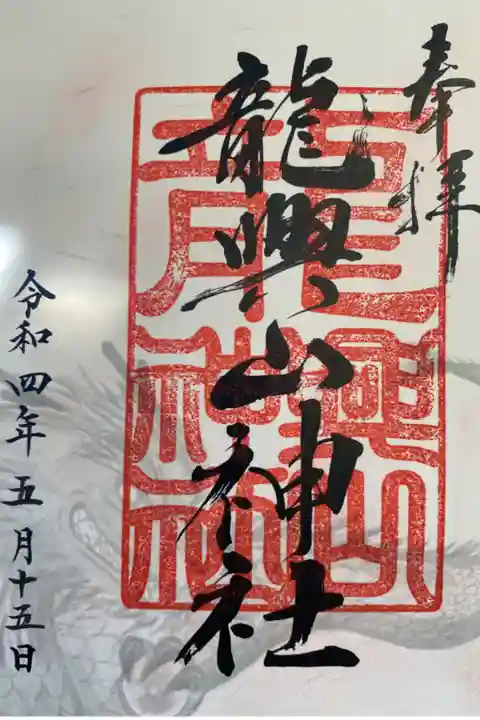 奉拝
龍興山神社
令和四年五月十五日